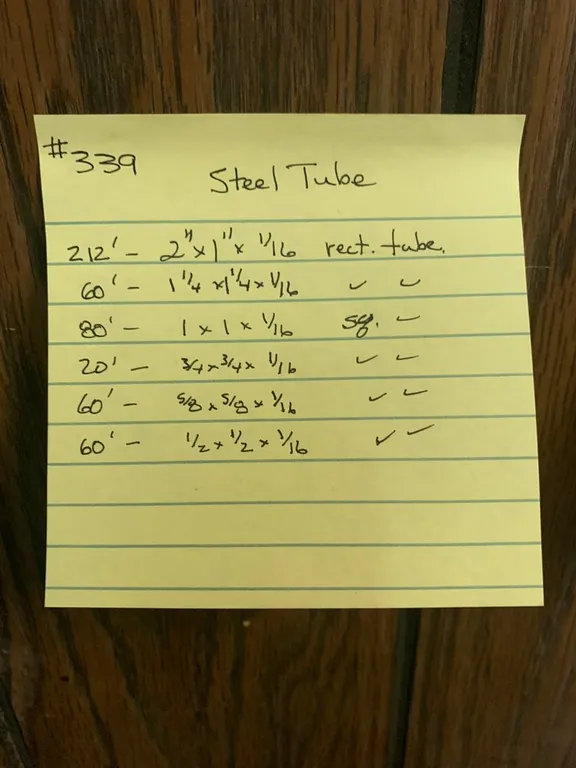 #339
Steel Tube
212' - 2" x 1" x 1/16 rect. tube.
60' - 1 1/4 x 1 1/4 x 1/16 ✓ ✓
80' - 1 x 1 x 1/16 sq. ✓
20' - 3/4 x 3/4 x 1/16 ✓ ✓
60' - 5/8 x 5/8 x 1/16 ✓ ✓
60' - 1/2 x 1/2 x 1/16 ✓ ✓